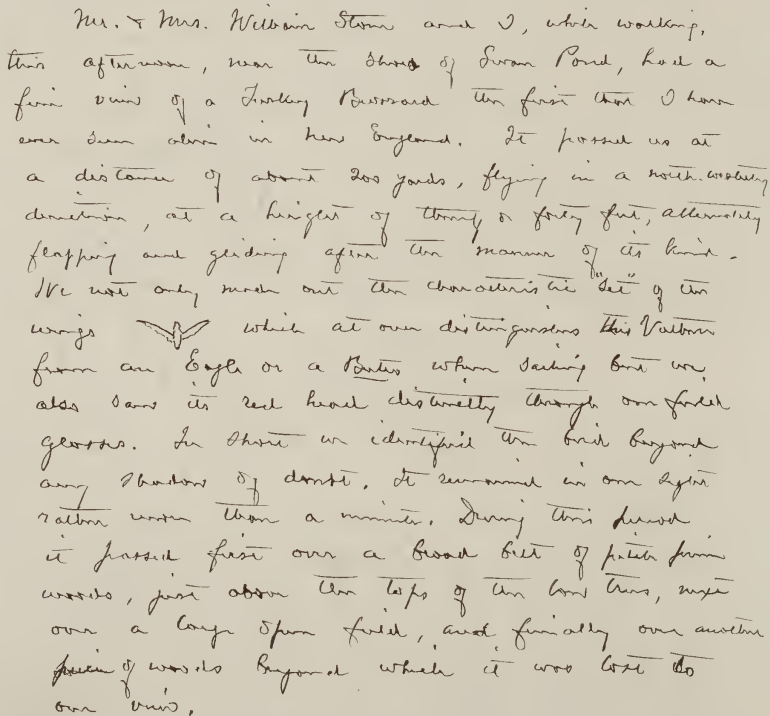 Mr. & Mrs. William Stone and I, while walking,
this afternoon, near the shores of Swan Pond, had a
fine view of a Turkey Buzzard the first that I have
ever seen alive in New England. It passed us at
a distance of about 200 yards, flying in a north-westerly
direction, at a height of thirty or forty feet, alternately
flapping and gliding after the manner of its kind.
We not only made out the characteristic "set" of the
wings which at once distinguishes this Vulture
from an Eagle or a Buteo when sailing but we
also saw its red head distinctly through our field
glasses. In short we identified the bird beyond
any shadow of doubt. It remained in our sight
rather more than a minute. During this period
it passed first over a broad belt of pitch pine
woods, just above the tops of the low trees, next
over a large open field, and finally over another
piece of woods beyond which it was lost to
our view.